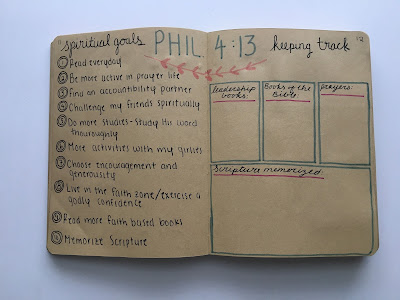 spiritual goals
PHIL 4:13
keeping track
12
① Read everyday
② Be more active in prayer life
③ Find an accountibility partner
④ Challenge my friends spiritually
⑤ Do more studies-Study His word
thouroughly
⑥ More activities with my girlies
⑦ Choose encouragement and
generousity
⑧ Live in the faith zone/exercise a
godly confidence
⑨ Read more faith based books
⑩ Memorize Scripture
leadership
books:
Books of the
Bible:
prayers:
Scripture memorized: